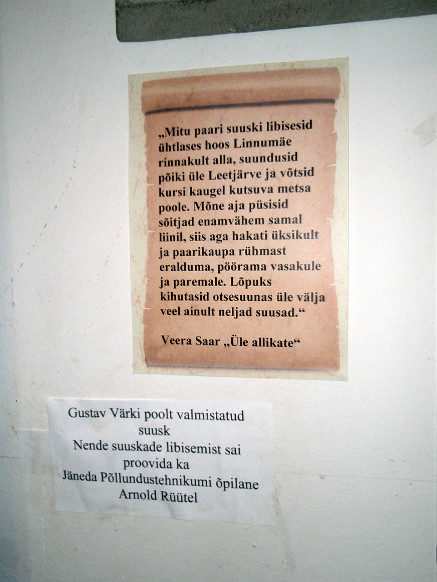 „Mitu paari suuski libisesid
ühtlases hoos Linnumäe
rinnakult alla, suundusid
põiki üle Leetjärve ja võtsid
kursi kaugel kutsuva metsa
poole. Mõne aja püsisid
sõitjad enamvähem samal
liinil, siis aga hakati üksikult
ja paarikaupa rühmast
eralduma, pöörama vasakule
ja paremale. Lõpuks
kihutasid otsesuunas üle välja
veel ainult neljad suusad.“
Veera Saar „Üle allikate“
Gustav Värki poolt valmistatud
suusk
Nende suuskade libisemist sai
proovida ka
Jäneda Põllundustehnikumi õpilane
Arnold Rüütel